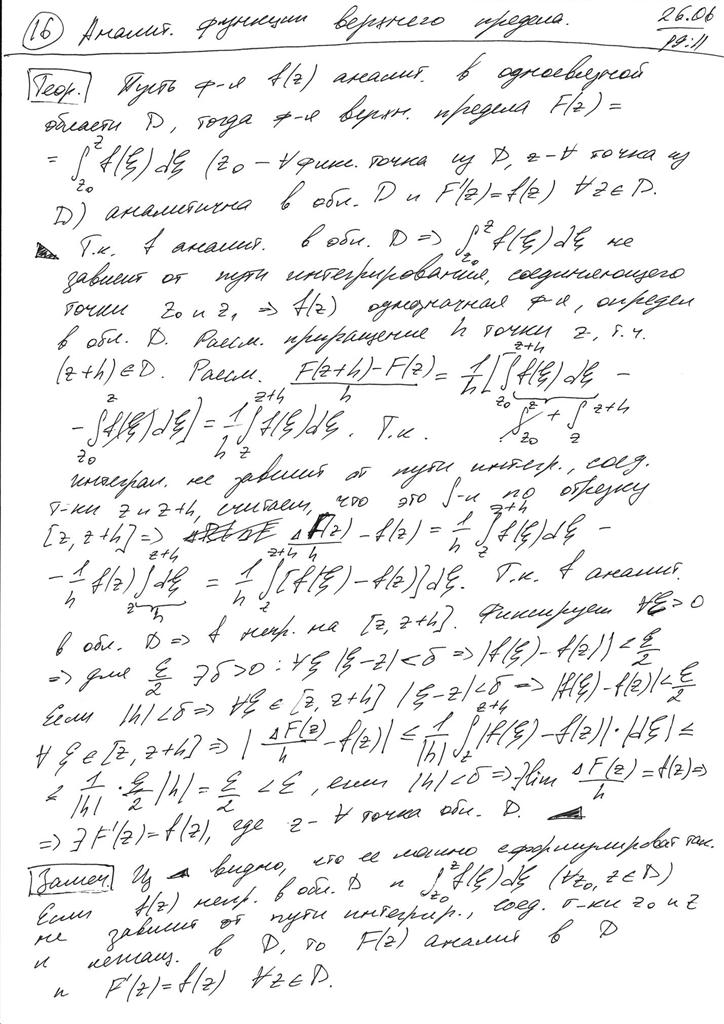 16 Аналит. функции верхнего предела. 26.06
19:11
Теор. Пусть ф-я f(z) аналит. в односвязной
области D, тогда ф-я верхн. предела F(z) =
= ∫_{z₀}^{z} f(ξ)dξ (z₀ – ∀ фикс. точка из D, z – ∀ точка из
D) аналитична в обл. D и F'(z) = f(z) ∀z∈D.
◣ Т.к. f аналит. в обл. D => ∫_{z₀}^{z} f(ξ)dξ не
зависит от пути интегрирования, соединяющего
точки z₀ и z₁ => f(z) однозначная ф-я, определ
в обл. D. Рассм. приращение h точки z, т.ч.
(z+h)∈D. Рассм. (F(z+h)-F(z))/h = 1/h [∫_{z₀}^{z+h} f(ξ)dξ –
– ∫_{z₀}^{z} f(ξ)dξ] = 1/h ∫_{z}^{z+h} f(ξ)dξ. Т.к. ∫_{z₀}^{z} + ∫_{z}^{z+h}
интеграл не зависит от пути интегр., соед.
т-ки z и z+h, считаем, что это ∫-л по отрезку
[z, z+h] => ΔF(z)/h – f(z) = 1/h ∫_{z}^{z+h} f(ξ)dξ –
– 1/h f(z) ∫_{z}^{z+h} dξ = 1/h ∫_{z}^{z+h} [f(ξ) – f(z)]dξ. Т.к. f аналит.
в обл. D => f непр. на [z, z+h]. Фиксируем ∀ε>0
=> для ε/2 ∃δ>0 : ∀ξ |ξ-z|<δ => |f(ξ)-f(z)|<ε/2
Если |h|<δ => ∀ξ∈[z, z+h] |ξ-z|<δ => |f(ξ)-f(z)|<ε/2
∀ξ∈[z, z+h] => |ΔF(z)/h – f(z)| ≤ 1/|h| ∫_{z}^{z+h} |f(ξ) – f(z)|·|dξ| ≤
≤ 1/|h| · ε/2 |h| = ε/2 < ε, если |h|<δ => ∃lim ΔF(z)/h = f(z) =>
=> ∃F'(z) = f(z), где z – ∀ точка обл. D. ◢
Замеч. Из ◢ видно, что ее можно сформулироват так.
Если f(z) непр. в обл. D и ∫_{z₀}^{z} f(ξ)dξ (∀z₀, z∈D)
не зависит от пути интегрир., соед. т-ки z₀ и z
и лежащ. в D, то F(z) аналит в D
и F'(z) = f(z) ∀z∈D.